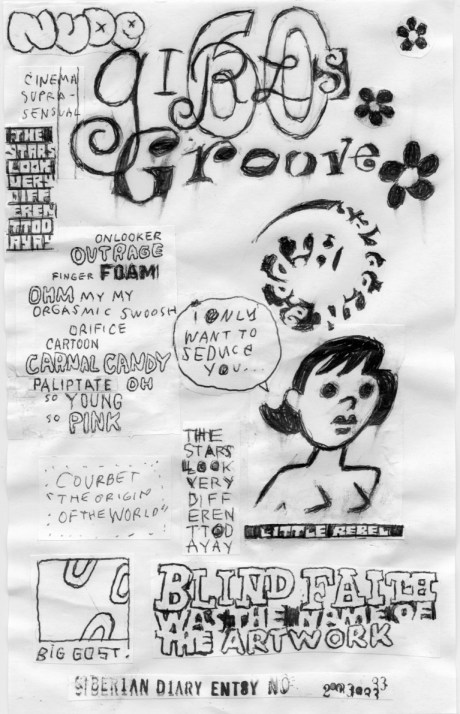 NUDE
GIRLS
GROOVE
60
CINEMA
SUPRA-
SENSUAL
THE
STARS
LOOK
VERY
DIFF
EREN
TTOD
AYAY
ONLOOKER
OUTRAGE
FINGER FOAM
OHM MY MY
ORGASMIC SWOOSH
ORIFICE
CARTOON
CARNAL CANDY
PALIPTATE OH
SO YOUNG
SO PINK
I ONLY
WANT TO
SEDUCE
YOU...
THE
STARS
LOOK
VERY
DIFF
EREN
TTOD
AYAY
LITTLE REBEL
COURBET
"THE ORIGIN
OF THE WORLD"
BIG GOST.
BLIND FAITH
WAS THE NAME OF
THE ARTWORK
SIBERIAN DIARY ENTSY NO